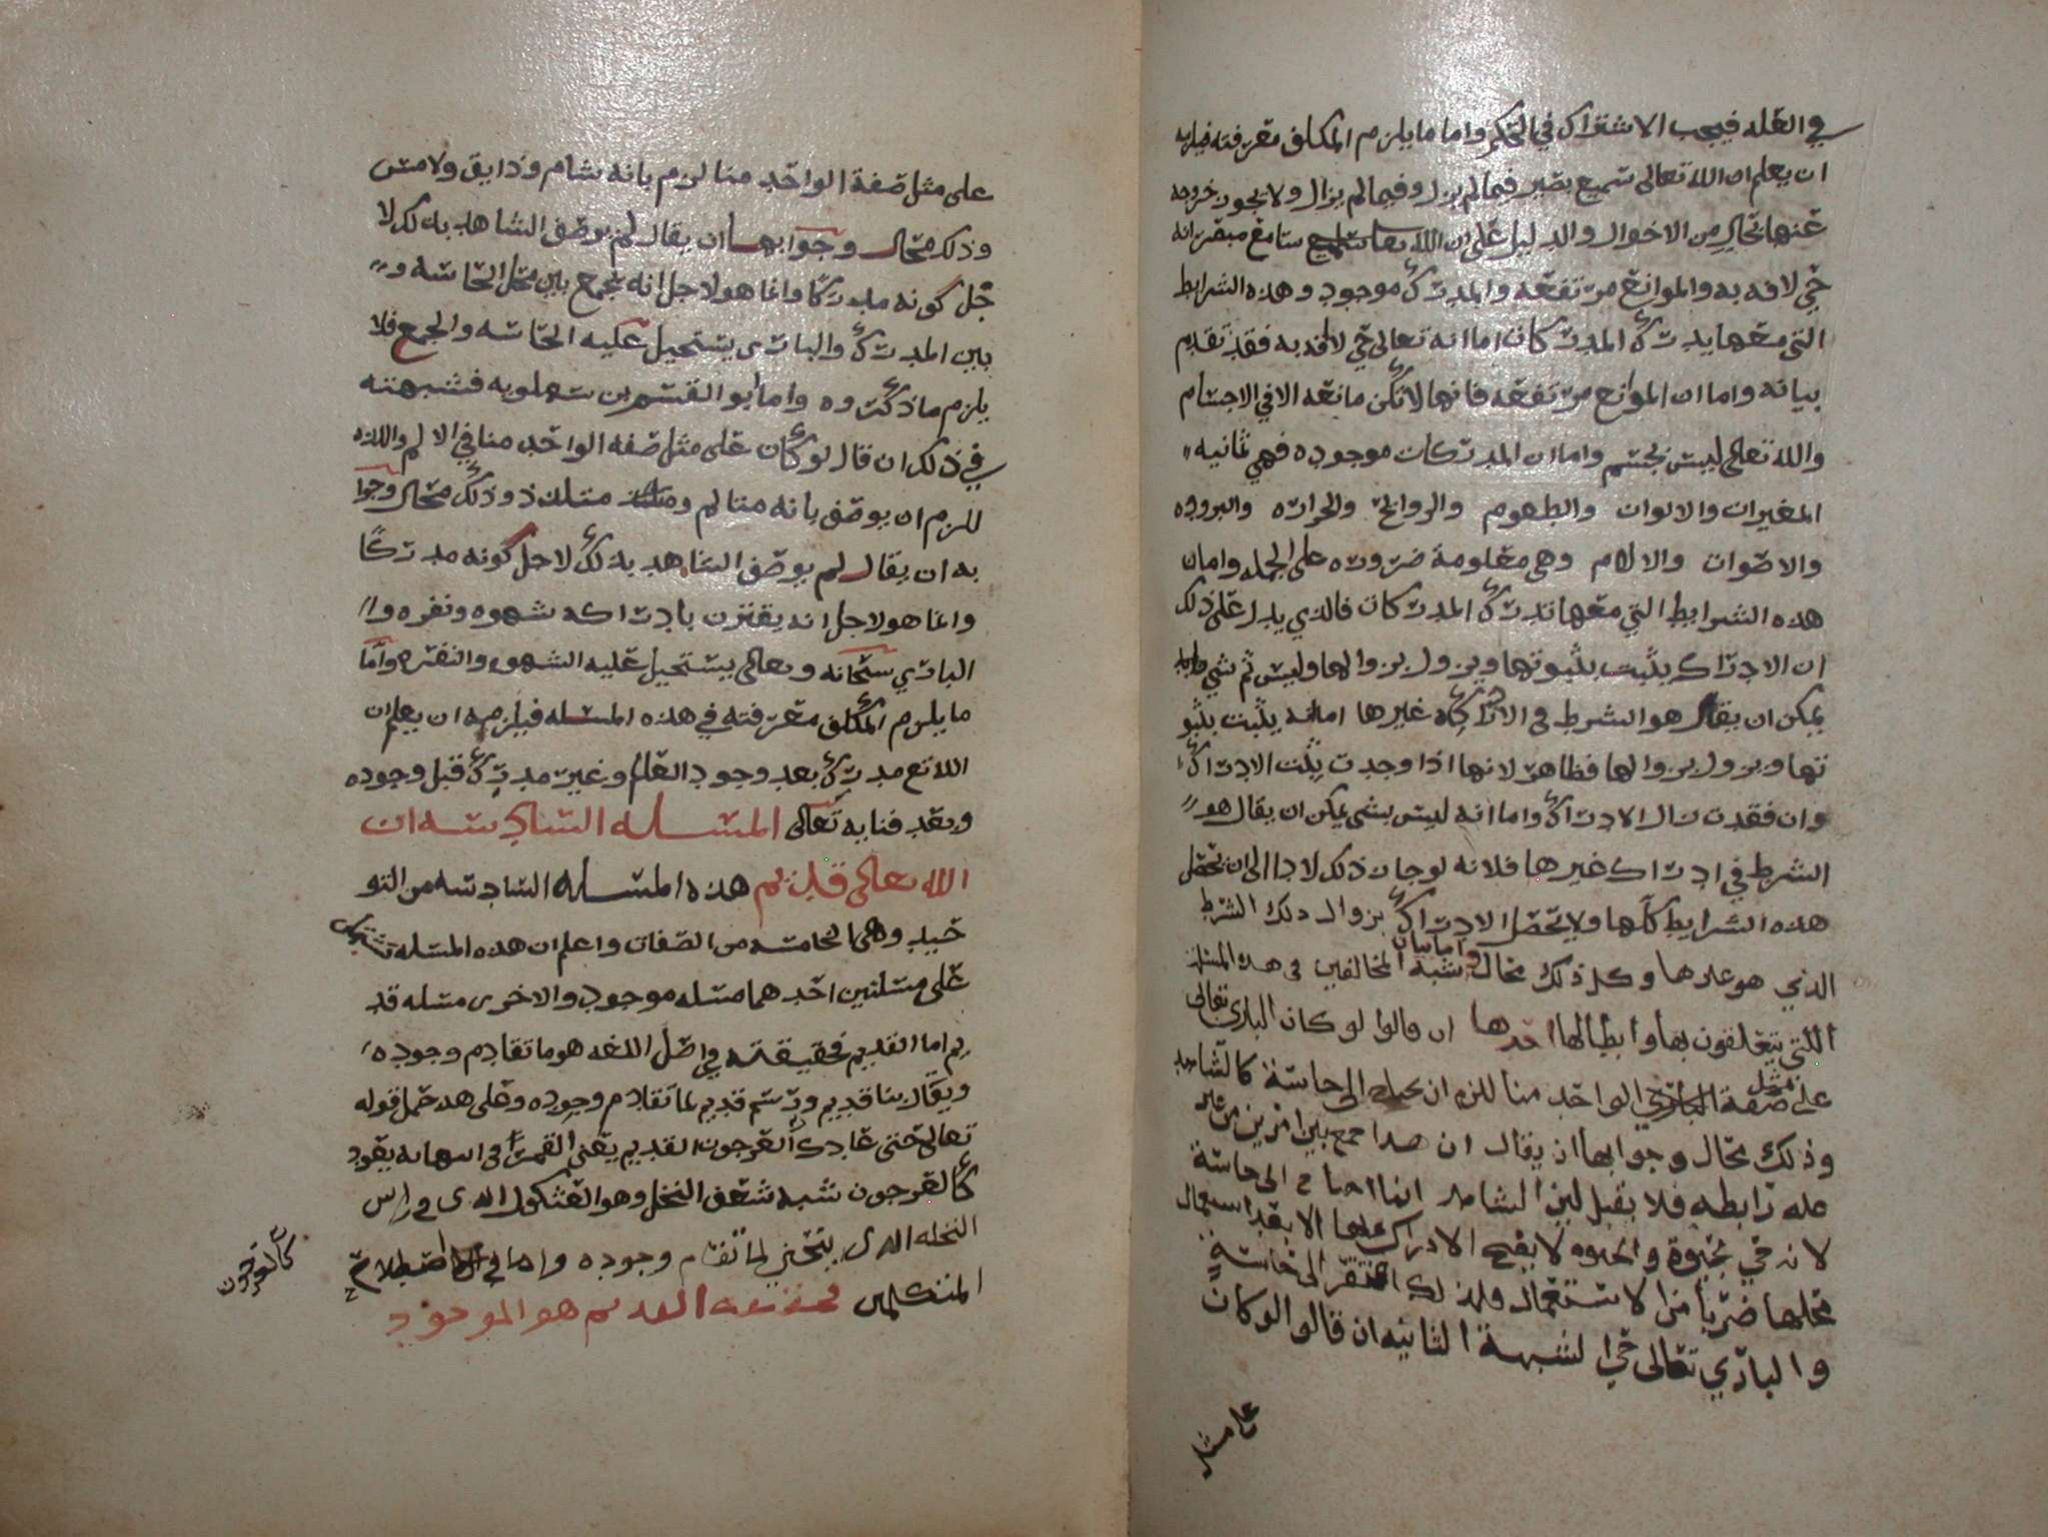 في العله فيجب الاشتراك في الحكم واما ما يلزم المكلف معرفته فيلزمه
ان يعلم ان الله تعالى سميع بصير فيما لم يزل وفيما لم يزال ولا يجوز خروجه
عنها بحال من الاحوال والدليل على ان الله تعالى سامع مبصر انه
حي لا افه به والموانع مرتفعه والمدرك موجود وهذه الشرايط
التي معها يدرك المدركات اما انه تعالى حي لا افه به فقد تقدم
بيانه واما ان الموانع مرتفعه فانها لا تكن مانعه الا في الاجسام
والله تعالى ليس بجسم واما ان المدركات موجوده فهي ثمانيه
المتحيزات والالوان والطعوم والروايح والحراره والبروده
والاصوات والالام وهي معلومة ضروره على الجمله واما ان
هذه الشرايط التي معها تدرك المدركات فالذي يدل على ذلك
ان الادراك يثبت بثبوتها ويزول بزوالها وليس ثم شي
يمكن ان يقال هو الشرط في الادراك غيرها اما انه يثبت بثبو
تها ويزول بزوالها فظاهر لانها اذا وجدت يثبت الادراك
وان فقدت زال الادراك واما انه ليس بشي يمكن ان يقال هو
الشرط في ادراك غيرها فلانه لو جاز ذلك لادا الى ان تحصل
هذه الشرايط كلها ولا يحصل الادراك بزوال ذلك الشرط
الذي هو غيرها وكل ذلك محال واما بيان شبه المخالفين في هذه المسله
اللتي يتعلقون بها وابطالها احدها ان قالوا لو كان الباري تعالى
على مثل صفة الواحد منا للزم ان يحتاج الى حاسة كالشاهد
وذلك محال وجوابها ان يقال ان هذا جمع بين امرين من غير
عله رابطه فلا يقبل لين الشاهد انما احتاج الى حاسة
لانه حي بحيوة والحيوه لا يصح الادراك عليها الا بعد استعمال
محلها ضربا من الاستعمال ولذلك افتقر الى حاسة
والباري تعالى حي الشبهة الثانيه ان قالوا لو كان
على مثل
على مثل صفة الواحد منا لزم بانه شام وذايق ولامس
وذلك محال وجوابها ان يقال لم يوصف الشاهد بذلك لا
جل كونه مدركا وانما هو لاجل انه يجمع بين محل الحاسه و
بين المدرك والباري يستحيل عليه الحاسه والجمع فلا
يلزم ما ذكروه واما ابو القسم بن سهلويه فشبهته
في ذلك ان قال لو كان على مثل صفه الواحد منا في الالم واللذه
للزم ان يوصف بانه متالم ومتلذذ وذلك محال وجوا
به ان يقال لم يوصف الشاهد بذلك لاجل كونه مدركا
وانما هو لاجل انه يقترن بادراكه شهوه ونفره و
الباري سبحانه وتعالى يستحيل عليه الشهوه والنفره واما
ما يلزم المكلف معرفته في هذه المسله فيلزمه ان يعلم ان
الله تع مدرك بعد وجود العالم وغير مدرك قبل وجوده
وبعد فنايه تعالى المسله السادسه ان
الله تعالى قديم هذه المسله السادسه من التو
حيد وهي الخامسه من الصفات واعلم ان هذه المسله تشتمل
على مسلتين احدهما مسله موجود والاخرى مسله قد
يم اما القديم فحقيقته في اصل اللغه هو ما تقادم وجوده
ويقال بنا قديم ورسم قديم لما تقادم وجوده وعلى هذا حمل قوله
تعالى حتى عاد كالعرجون القديم يعني القمر في انتهايه يعود
كالعرجون شبه شعف النخل وهو العثكول الذي في راس
النخله الذي ينحني لما تقادم وجوده واما في اصطلاح
المتكلمين فحقيقة القديم هو الموجود
كالعرجون